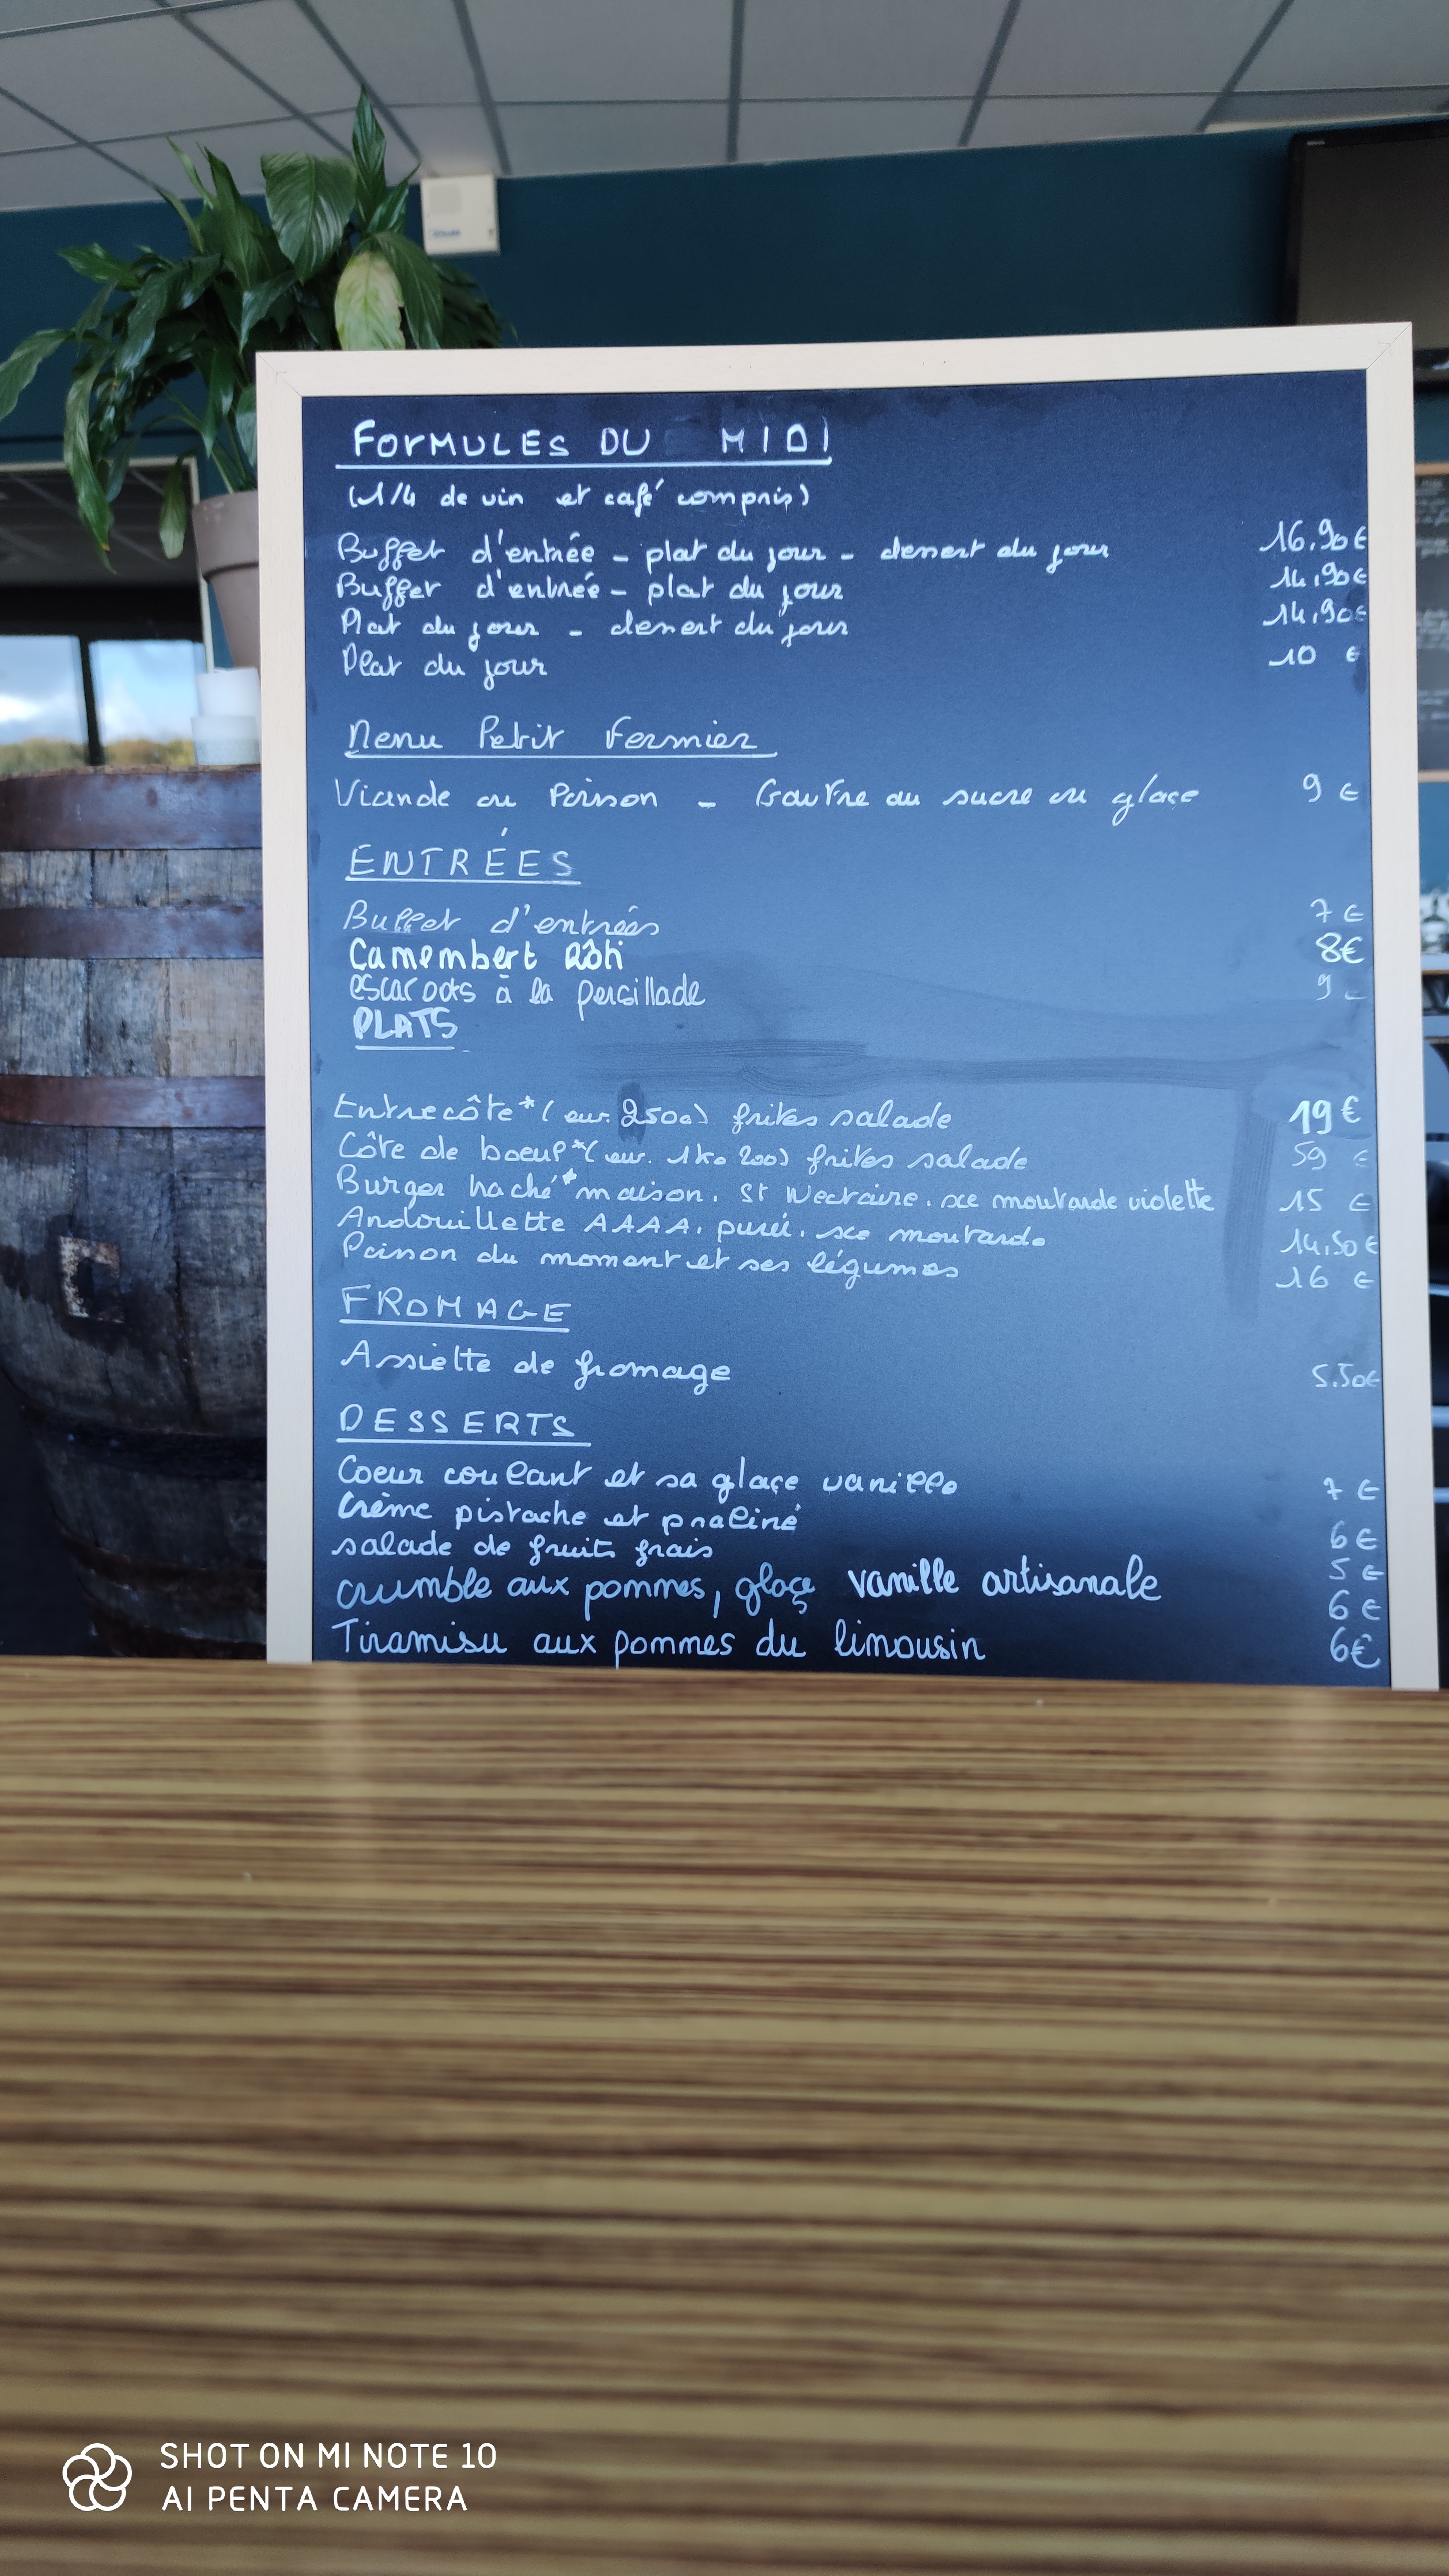 FORMULES DU MIDI
(1/4 de vin et café compris)
Buffet d'entrée - plat du jour - dessert du jour 16,90€
Buffet d'entrée - plat du jour 14,90€
Plat du jour - dessert du jour 14,90€
Plat du jour 10 €
Menu Petit Fermier
Viande ou Poisson - Gaufre au sucre ou glace 9 €
ENTRÉES
Buffet d'entrées 7 €
Camembert Rôti 8€
escar ots à la persillade 9
PLATS
Entrecôte* (env. 250g) frites salade 19€
Côte de boeuf* (env. 1kg 200) frites salade 59 €
Burger haché* maison. St Nectaire. sce moutarde violette 15 €
Andouillette AAAA. purée. sce moutarde 14,50€
Poisson du moment et ses légumes 16 €
FROMAGE
Assiette de fromage 5.50€
DESSERTS
Coeur coulant et sa glace vanille 7 €
Crème pistache et praliné 6€
salade de fruits frais 5 €
crumble aux pommes, glace vanille artisanale 6€
Tiramisu aux pommes du limousin 6€
SHOT ON MI NOTE 10
AI PENTA CAMERA